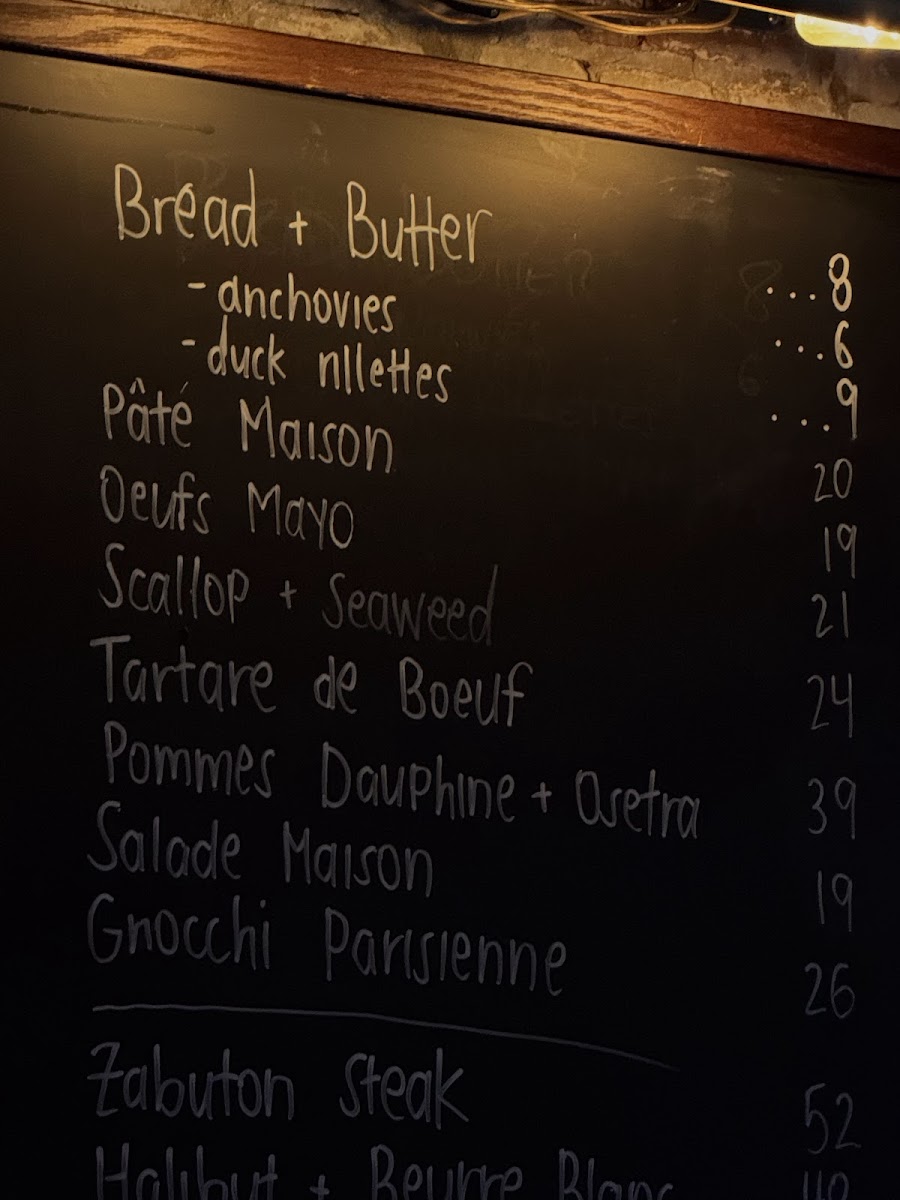 Bread + Butter ...8
- anchovies ...6
- duck rillettes ...9
Pâté Maison 20
Oeufs Mayo 19
Scallop + Seaweed 21
Tartare de Boeuf 24
Pommes Dauphine + Osetra 39
Salade Maison 19
Gnocchi Parisienne 26
Zabuton Steak 52
Halibut + Beurre Blanc